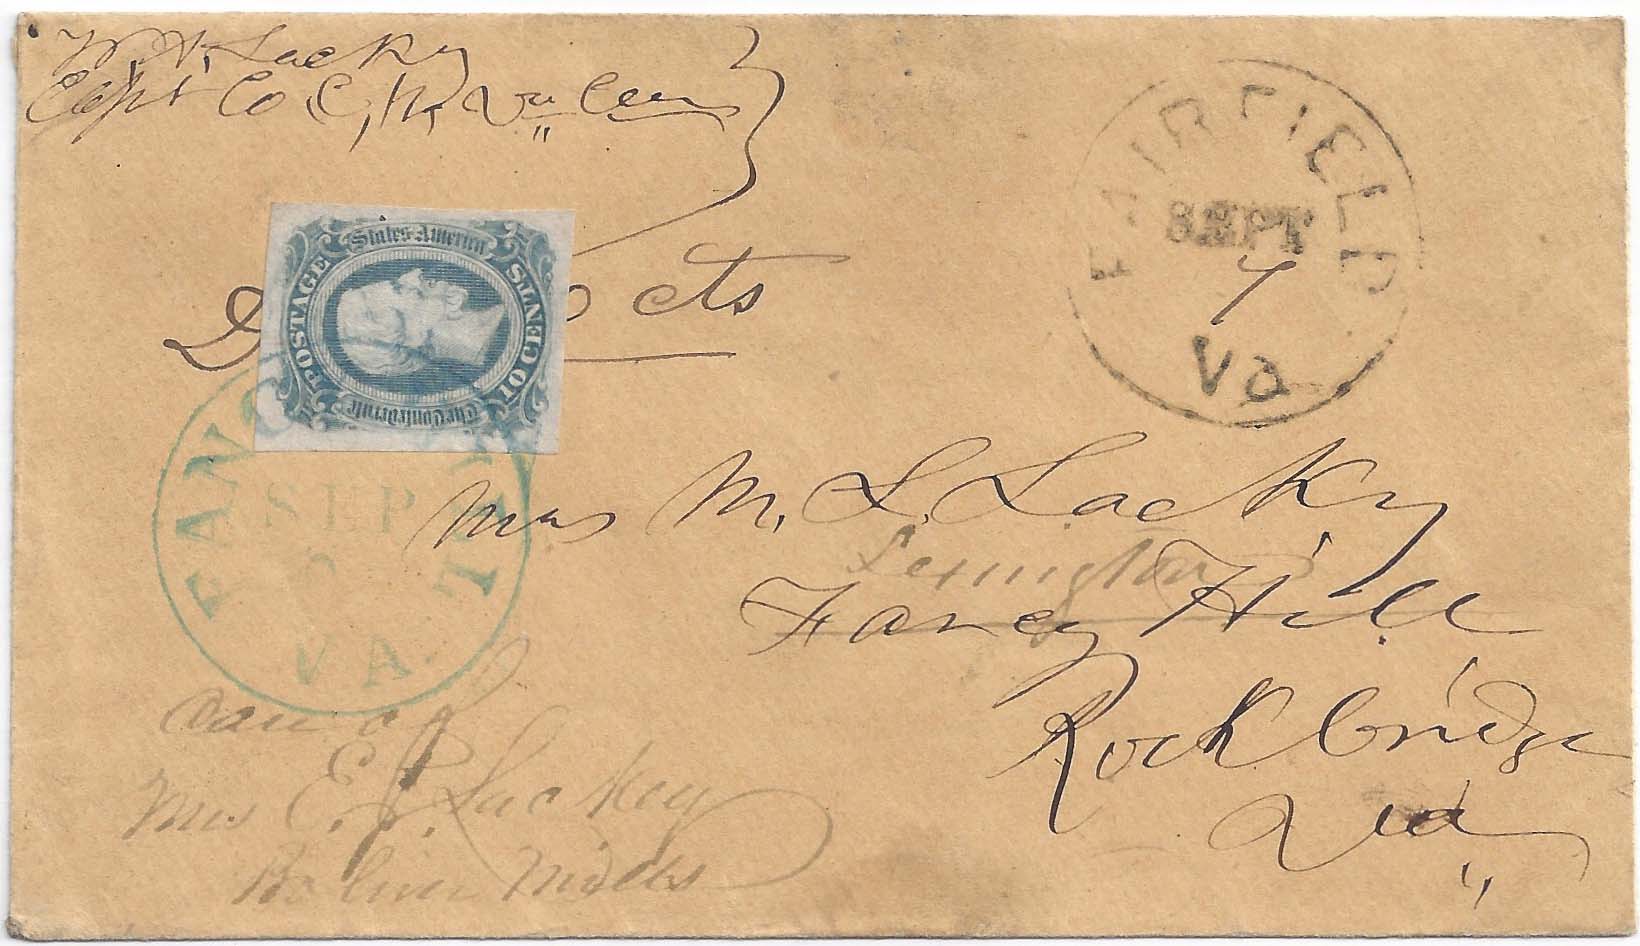 W. A. Lacky
Capt Co. C, 11, Va Cav
FAIRFIELD
SEPT
7
Va
The Confederate
States America
POSTAGE
10 CENTS
D cts
FANCY
SEP
VA
Mrs M. L. Lacky
Lexington
Fancy Hill
Rockbridge
Va
Care of
Mrs E. J. Lackey